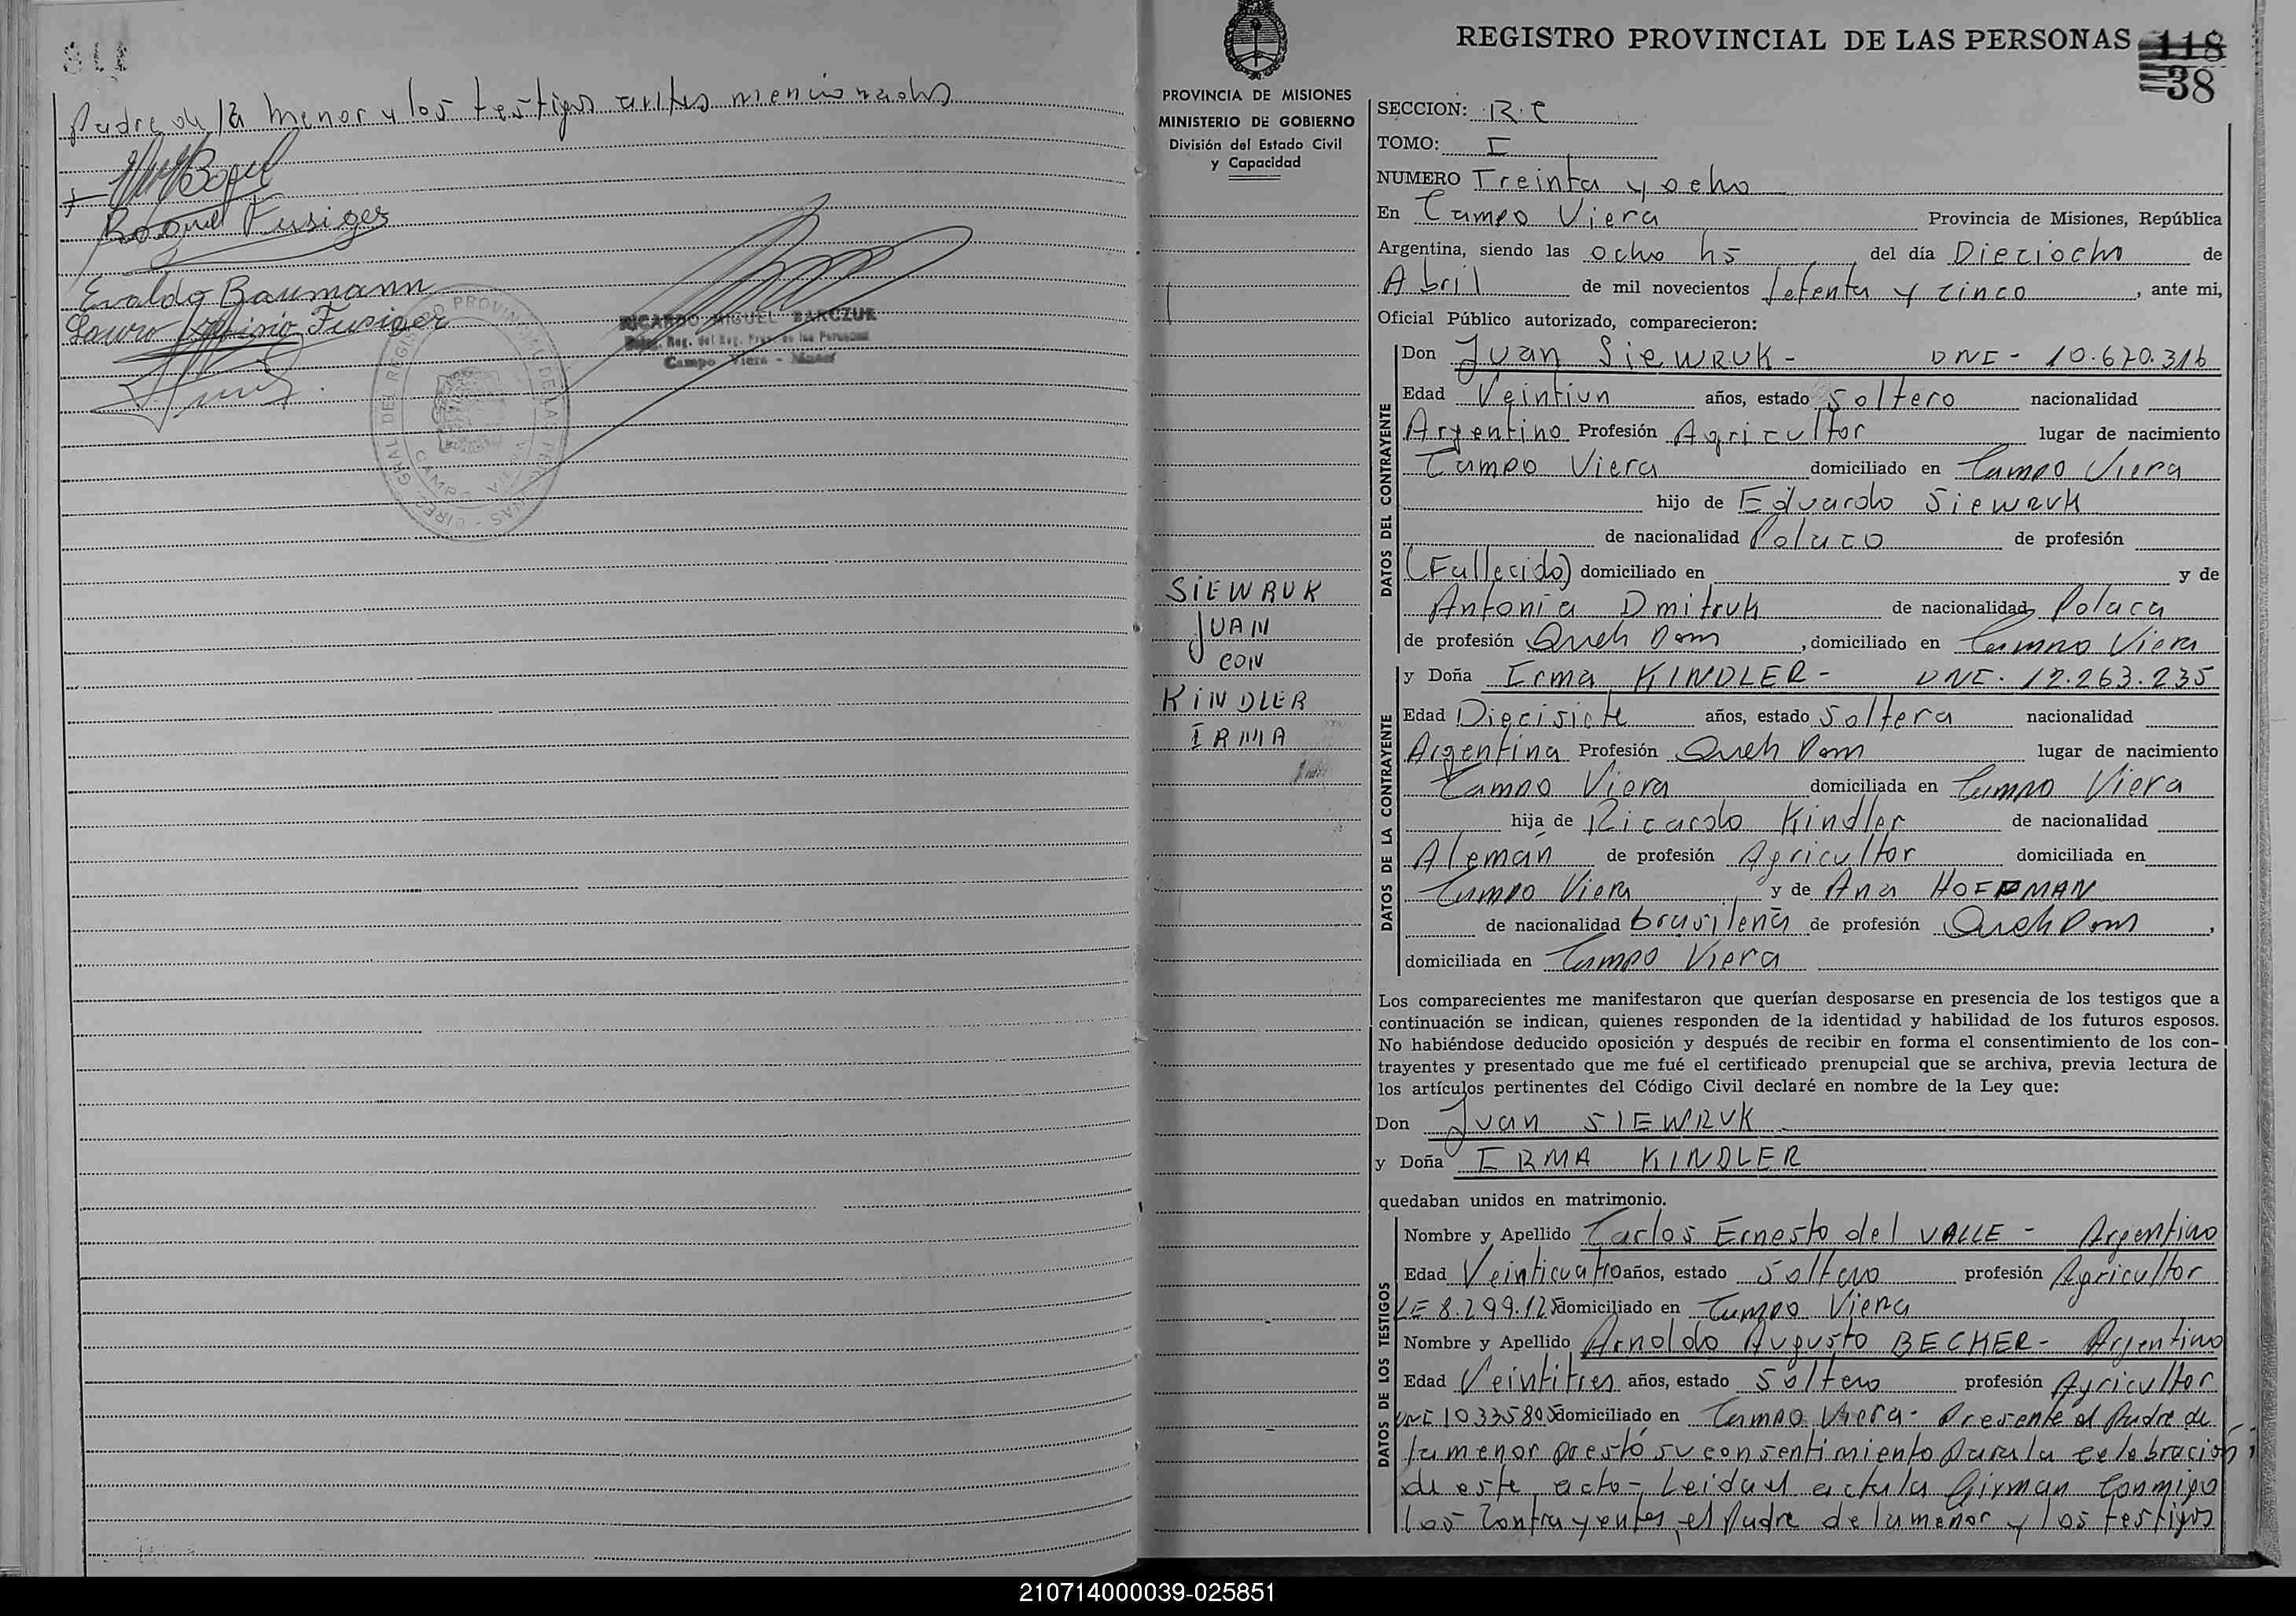 118
Padre de la menor y los testigos antes mencionados
Roquel Fusiger
Evaldo Baumann
Lauro Fusiger
RICARDO MIGUEL BARCZUK
Campo Viera - Misiones
REGISTRO PROVINCIAL DE LAS PERSONAS
118
38
PROVINCIA DE MISIONES
MINISTERIO DE GOBIERNO
División del Estado Civil
y Capacidad
SIEWRUK
JUAN
CON
KINDLER
IRMA
SECCION: R.C
TOMO: I
NUMERO Treinta y ocho
En Campo Viera Provincia de Misiones, República
Argentina, siendo las ocho hs del día Dieciocho de
Abril de mil novecientos setenta y cinco, ante mi,
Oficial Público autorizado, comparecieron:
DATOS DEL CONTRAYENTE
Don Juan SIEWRUK - DNI - 10.670.316
Edad Veintiun años, estado Soltero nacionalidad
Argentino Profesión Agricultor lugar de nacimiento
Campo Viera domiciliado en Campo Viera
hijo de Eduardo Siewruk
de nacionalidad Polaco de profesión
(Fallecido) domiciliado en y de
Antonia Dmitruk de nacionalidad Polaca
de profesión Queh Dom, domiciliado en Campo Viera
DATOS DE LA CONTRAYENTE
y Doña Irma KINDLER - DNI. 12.263.235
Edad Diecisiete años, estado Soltera nacionalidad
Argentina Profesión Queh Dom lugar de nacimiento
Campo Viera domiciliada en Campo Viera
hija de Ricardo Kindler de nacionalidad
Alemán de profesión Agricultor domiciliada en
Campo Viera y de Ana HOFFMAN
de nacionalidad brasileña de profesión Queh Dom,
domiciliada en Campo Viera
Los comparecientes me manifestaron que querían desposarse en presencia de los testigos que a
continuación se indican, quienes responden de la identidad y habilidad de los futuros esposos.
No habiéndose deducido oposición y después de recibir en forma el consentimiento de los con-
trayentes y presentado que me fué el certificado prenupcial que se archiva, previa lectura de
los artículos pertinentes del Código Civil declaré en nombre de la Ley que:
Don Juan SIEWRUK
y Doña IRMA KINDLER
quedaban unidos en matrimonio.
DATOS DE LOS TESTIGOS
Nombre y Apellido Carlos Ernesto del VALLE - Argentino
Edad Veinticuatro años, estado Soltero profesión Agricultor
LE 8.299.125 domiciliado en Campo Viera
Nombre y Apellido Arnoldo Augusto BECKER - Argentino
Edad Veintitres años, estado Soltero profesión Agricultor
DNI 10335805 domiciliado en Campo Viera - Presente el Padre de
la menor prestó su consentimiento para la celebración
de este acto - Leida el acta la firman conmigo
los Contrayentes, el Padre de la menor y los testigos
210714000039-025851